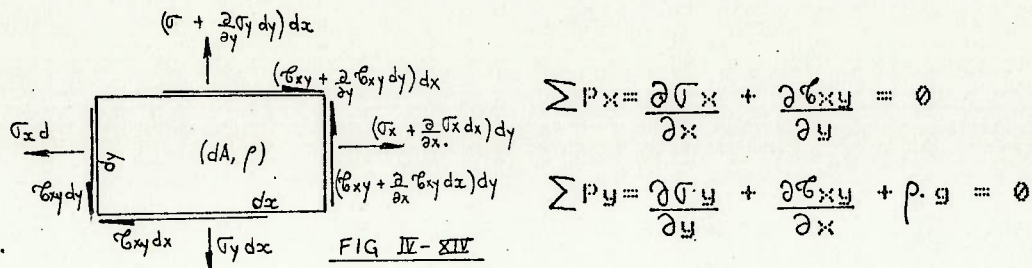 (σ + ∂/∂y σy dy) dx
(τxy + ∂/∂y τxy dy) dx
σx d
(σx + ∂/∂x. σx dx) dy
dy
(dA, ρ)
τxy dy
(τxy + ∂/∂x τxy dx) dy
dx
τxy dx
σy dx
FIG IV-XIV
∑Px = ∂σx/∂x + ∂τxy/∂y = 0
∑Py = ∂σy/∂y + ∂τxy/∂x + ρ.g = 0